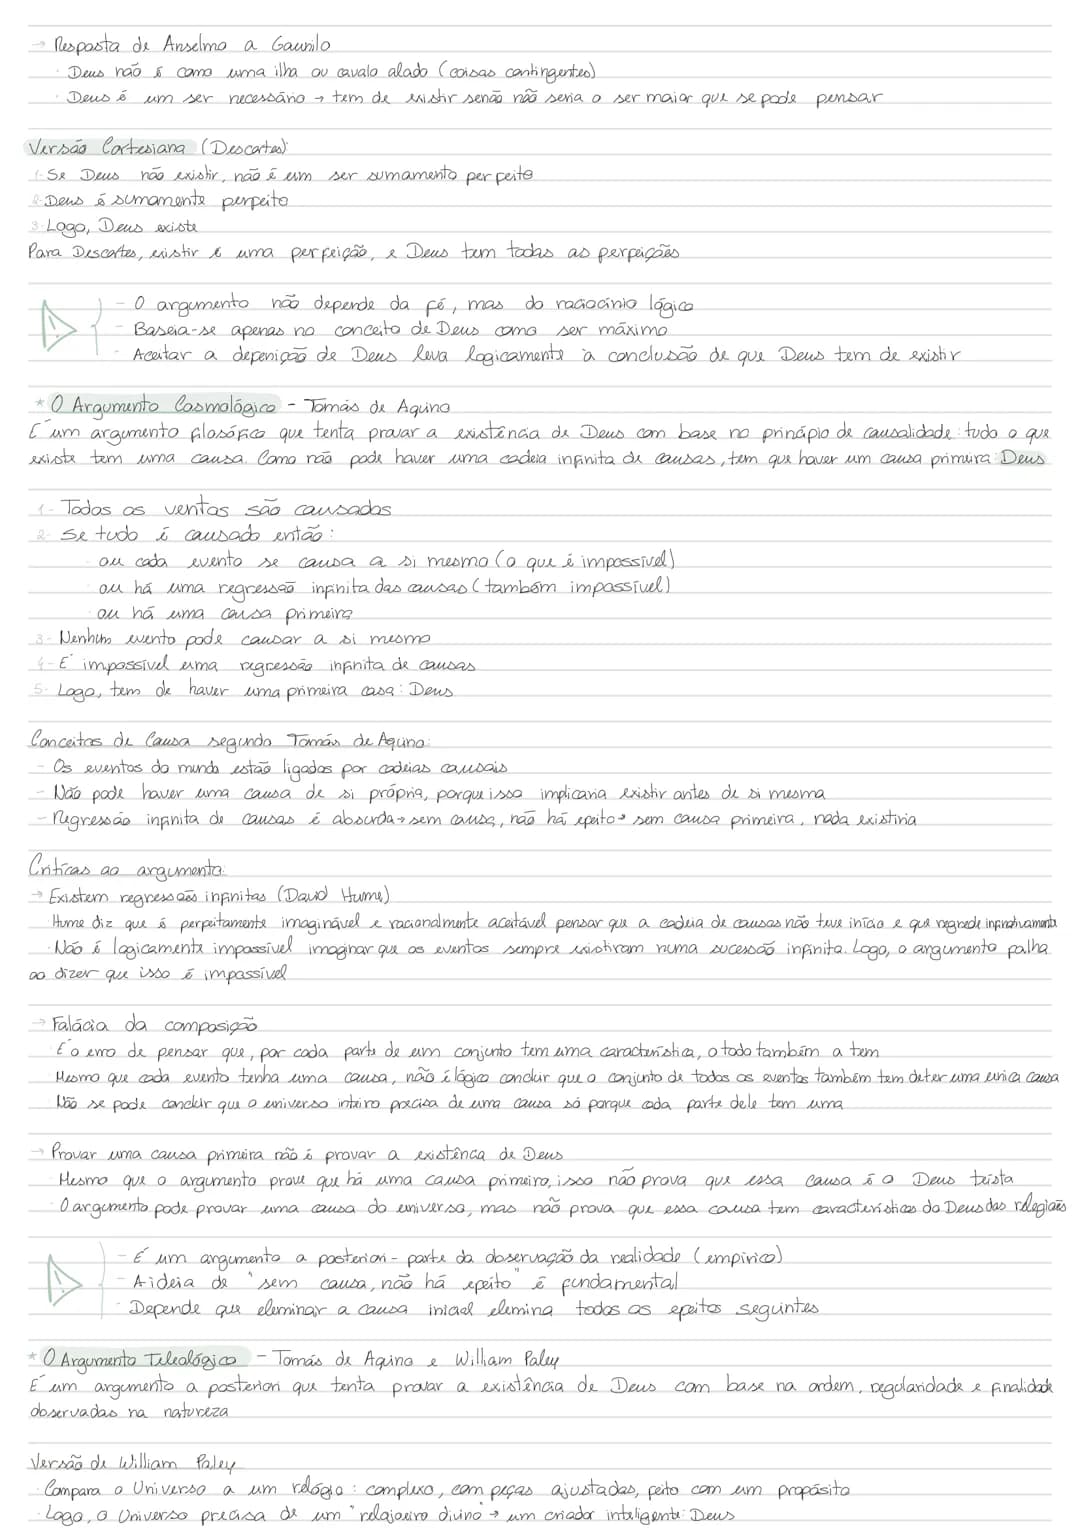 → Resposta de Anselmo a Gaunilo
· Deus não é como uma ilha ou cavalo alado (coisas contingentes)
· Deus é um ser necessário → tem de existir senão não seria o ser maior que se pode pensar
Versão Cartesiana (Descartes):
1- Se Deus não existir, não é um ser sumamento perfeito
2- Deus é sumamente perfeito
3- Logo, Deus existe
Para Descartes, existir é uma perfeição, e Deus tem todas as perfeições
- O argumento não depende da fé, mas do raciocínio lógico
- Baseia-se apenas no conceito de Deus como ser máximo
- Aceitar a defenição de Deus leva logicamente à conclusão de que Deus tem de existir
* O Argumento Cosmológico - Tomás de Aquino
É um argumento filosófico que tenta provar a existência de Deus com base no princípio de causalidade: tudo o que
existe tem uma causa. Como não pode haver uma cadeia infinita de causas, tem que haver um causa primeira: Deus
1- Todos os ventos são causados
2- Se tudo é causado então:
· ou cada evento se causa a si mesmo (o que é impossível)
· ou há uma regressão infinita das causas (também impossível)
· ou há uma causa primeira
3- Nenhum evento pode causar a si mesmo
4- É impossível uma regressão infinita de causas
5- Logo, tem de haver uma primeira casa: Deus
Conceitos de Causa segundo Tomás de Aquino:
- Os eventos do mundo estão ligados por cadeias causais
- Não pode haver uma causa de si própria, porque isso implicaria existir antes de si mesma
- Regressão infinita de causas é absurda → sem causa, não há efeito → sem causa primeira, nada existiria
Críticas ao argumento:
→ Existem regressões infinitas (David Hume)
· Hume diz que é perfeitamente imaginável e racionalmente aceitável pensar que a cadeia de causas não teve início e que regrede infinitivamente
· Não é logicamente impossível imaginar que os eventos sempre existiram numa sucessão infinita. Logo, o argumento falha
ao dizer que isso é impossível
→ Falácia da composição
· É o erro de pensar que, por cada parte de um conjunto tem uma característica, o todo também a tem
· Mesmo que cada evento tenha uma causa, não é lógico concluir que o conjunto de todos os eventos também tem de ter uma única causa
· Não se pode concluir que o universo inteiro precisa de uma causa só porque cada parte dele tem uma
→ Provar uma causa primeira não é provar a existência de Deus
· Mesmo que o argumento prove que há uma causa primeiro, isso não prova que essa causa é o Deus teísta
· O argumento pode provar uma causa do universo, mas não prova que essa causa tem características do Deus das religiões
- É um argumento a posteriori - parte da observação da realidade (empírico)
- A ideia de "sem causa, não há efeito" é fundamental
- Depende que eleminar a causa inicial elemina todos os efeitos seguintes
* O Argumento Teleológico - Tomás de Aqino e William Paley
É um argumento a posteriori que tenta provar a existência de Deus com base na ordem, regularidade e finalidade
observadas na natureza
Versão de William Paley
· Compara o Universo a um relógio: complexo, com peças ajustadas, feito com um propósito
· Logo, o Universo precisa de um "relojoeiro divino" → um criador inteligente: Deus